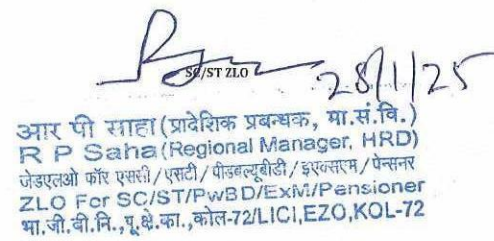 SC/ST ZLO
28/1/25
आर पी साहा (प्रादेशिक प्रबन्धक, मा.सं.वि.)
R P Saha (Regional Manager, HRD)
जेडएलओ फॉर एससी/एसटी/पीडबल्यूबीडी/इएक्सएम/पेन्सनर
ZLO For SC/ST/PwBD/ExM/Pensioner
भा.जी.बी.नि.,पू.क्षे.का.,कोल-72/LICI,EZO,KOL-72